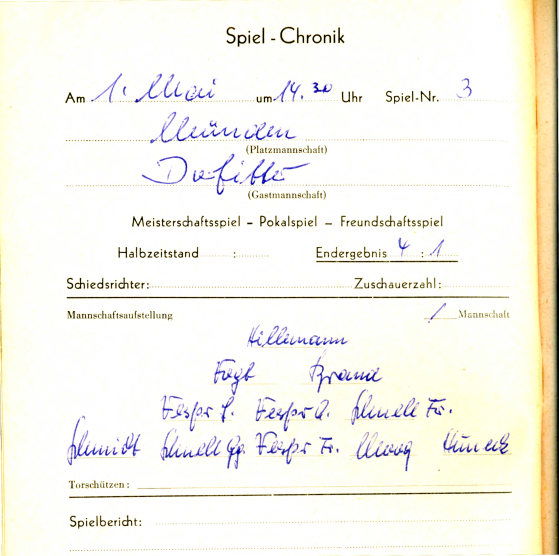 Spiel - Chronik
Am 1. Mai um 14.30 Uhr Spiel-Nr. 3
Münden
(Platzmannschaft)
(Gastmannschaft)
Meisterschaftsspiel – Pokalspiel – Freundschaftsspiel
Halbzeitstand : Endergebnis 4 : 1
Schiedsrichter: Zuschauerzahl:
Mannschaftsaufstellung 1 Mannschaft
Hillemann
Vogt Brand
Schnell Fr.
Schmidt Schnell Gg. Fr. Moog
Torschützen:
Spielbericht: